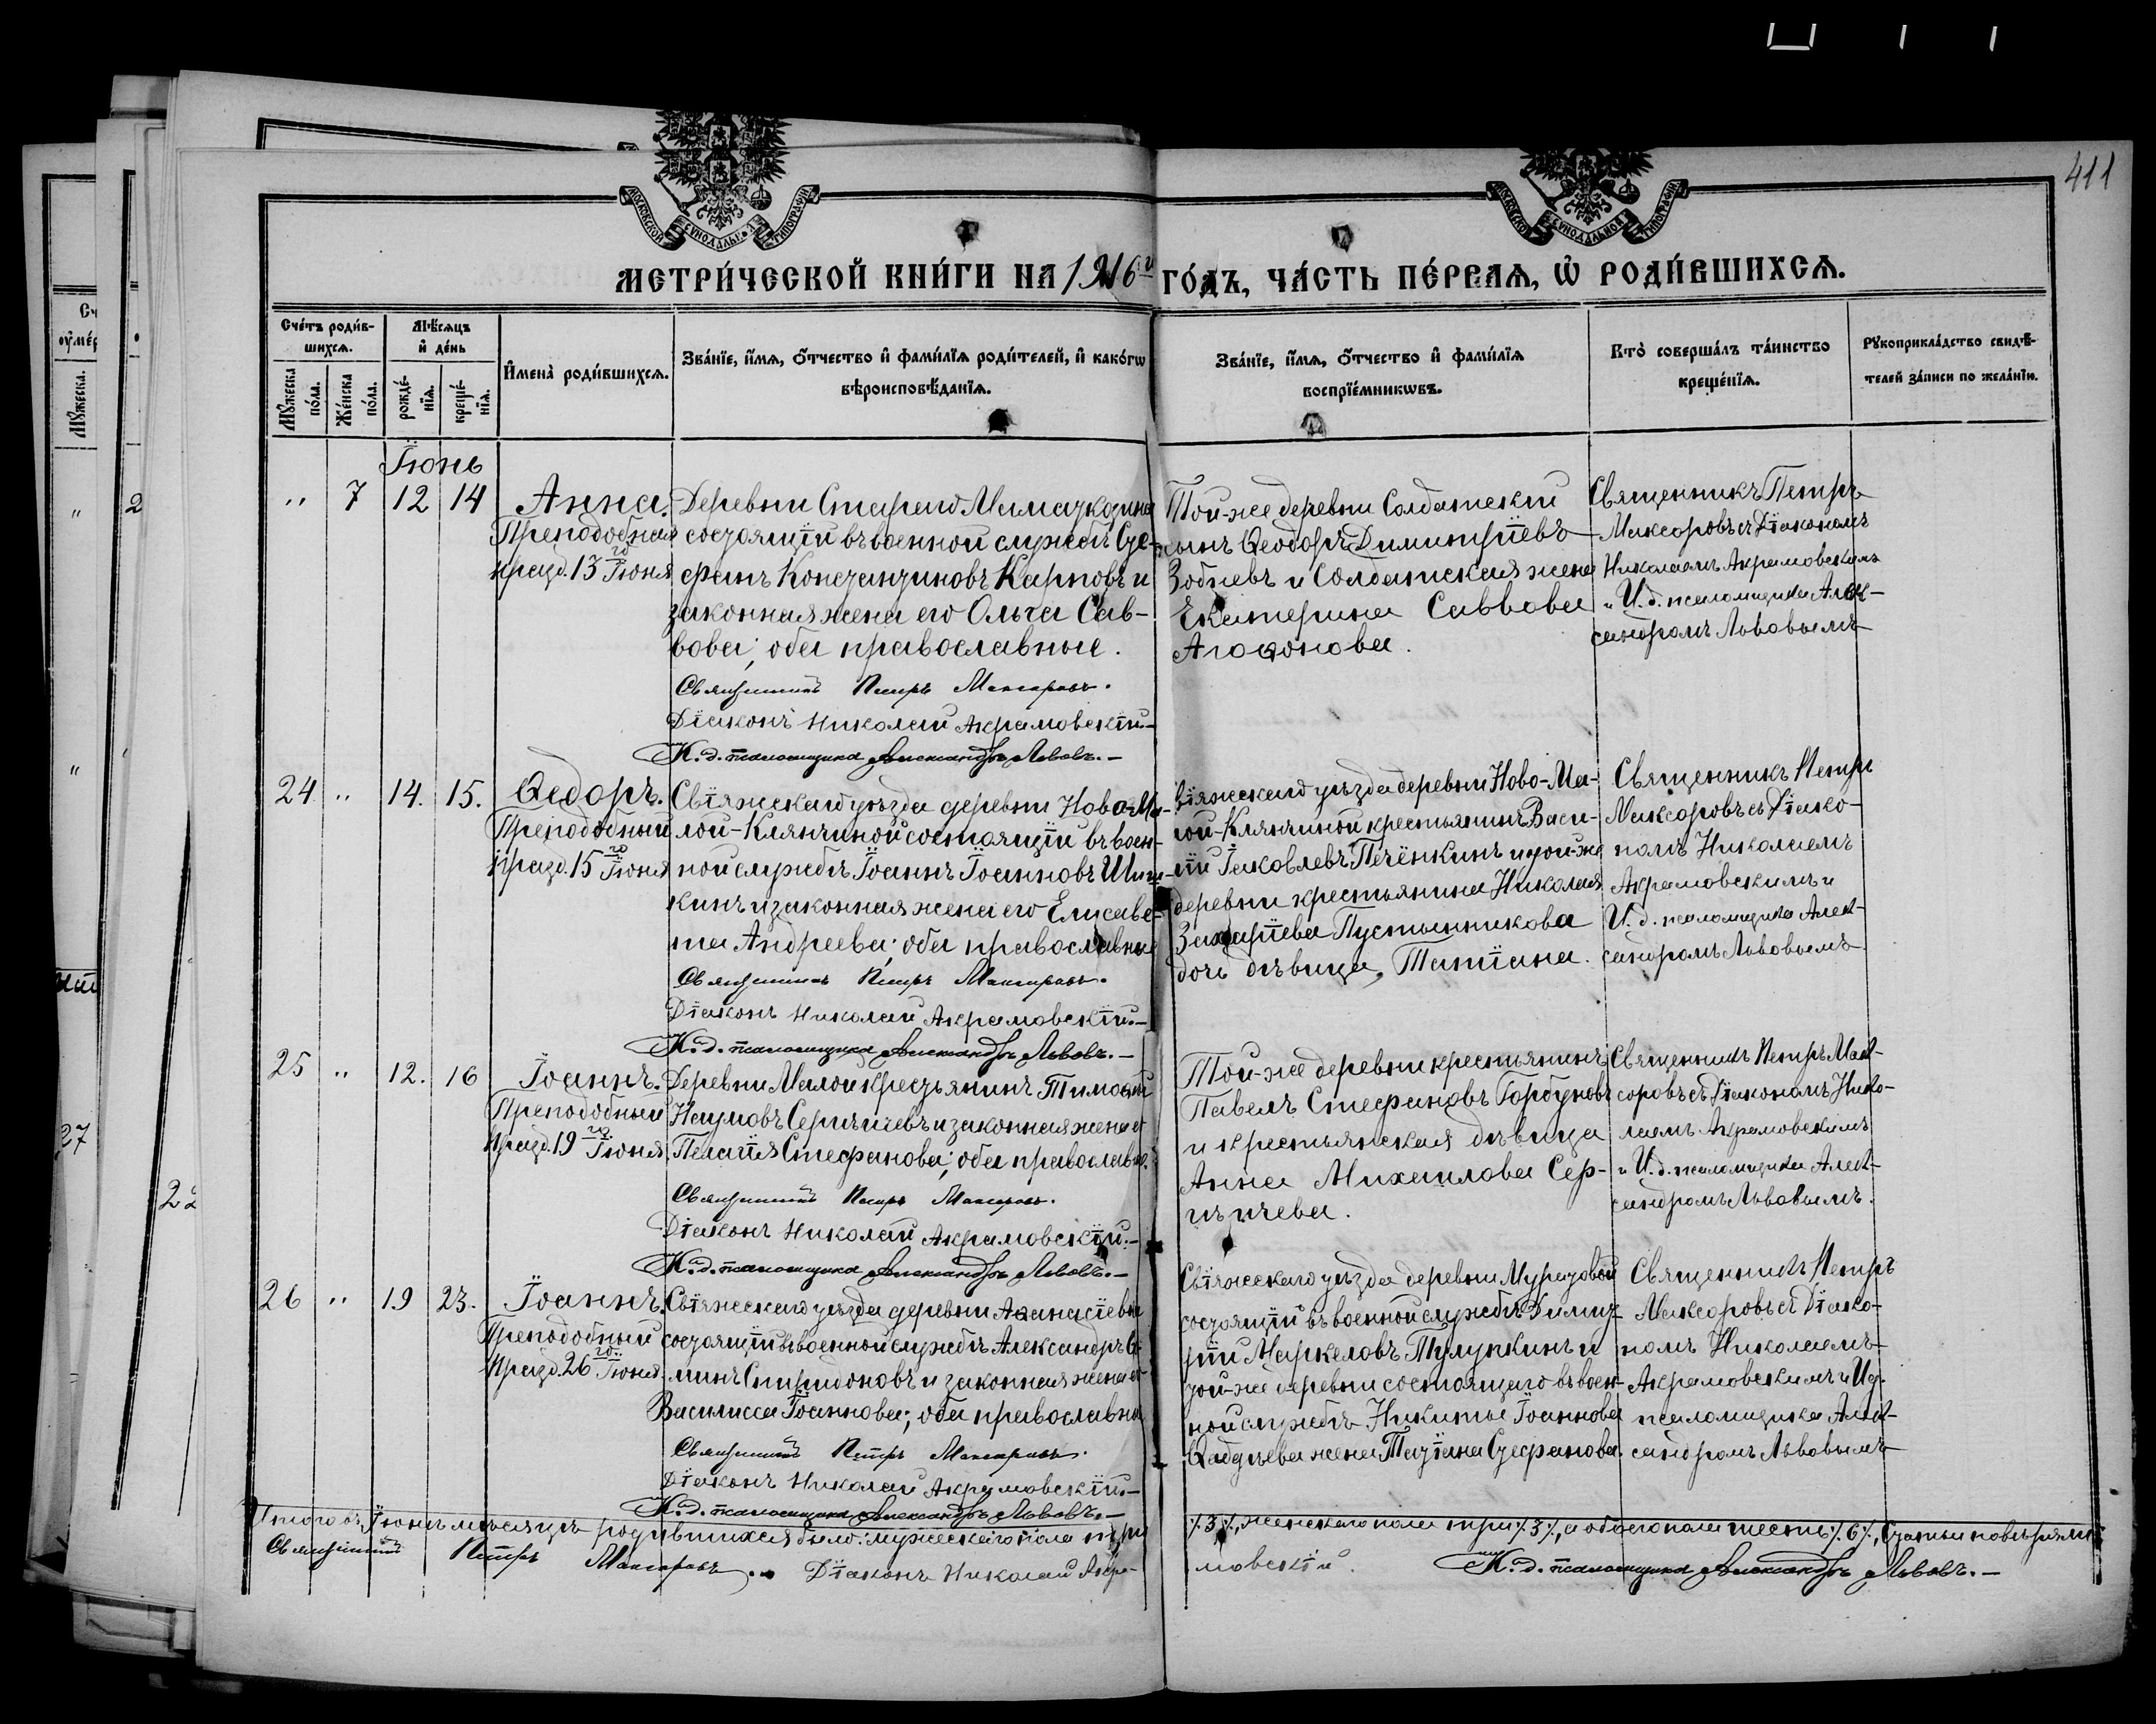 411
МОСКОВСКОЙ СѴНОДАЛЬНОЙ ТИПОГРАФІИ
МОСКОВСКОЙ СѴНОДАЛЬНОЙ ТИПОГРАФІИ
МЕТРИ́ЧЕСКОЙ КНИ́ГИ НА 1916й ГО́ДЪ, ЧА́СТЬ ПЕ́РВАѦ, Ѡ҆ РОДИ́ВШИХСѦ.
Сче́тъ роди́в-
шихсѧ.
Мꙋ́жеска по́ла.
Же́нска по́ла.
Мѣ́сѧцъ
и҆ де́нь
рожде́-
нїѧ.
креще́-
нїѧ.
И҆мена̀ роди́вшихсѧ.
Зва́нїе, и҆́мѧ, ѻ҆́тчество и҆ фами́лїѧ роди́телей, и҆ како́гѡ
вѣроисповѣ́данїѧ.
Зва́нїе, и҆́мѧ, ѻ҆́тчество и҆ фами́лїѧ
воспрїе́мникѡвъ.
Кто̀ соверша́лъ та́инство
креще́нїѧ.
Рꙋкоприкла́дство свидѣ́-
телей за́писи по жела́нїю.
Іюнь
" 7 12 14 Анна.
Преподобная
празд. 13го Іюня
Деревни Стараго
состоящій въ военной службѣ Сте-
фанъ Константиновъ Карповъ и
законная жена его Ольга Сав-
вова; оба православные.
Священникъ Петръ Максоровъ.
Діаконъ Николай Акрамовскій.—
И. д. псаломщика Александръ Львовъ.—
Той-же деревни Солдатскій
сынъ Ѳеодоръ Димитріевъ
Зобневъ и Солдатская жена
Екатерина Саввова
Агаѳонова.
Священникъ Петръ
Максоровъ съ Діакономъ
Николаемъ Акрамовскимъ
и И. д. псаломщика Алек-
сандромъ Львовымъ
24 " 14. 15. Ѳедоръ.
Преподобный
празд. 15го Іюня
Свіяжскаго уѣзда деревни Ново-Ма-
лой-Клянчиной состоящій въ воен-
ной службѣ Іоаннъ Іоанновъ
кинъ и законная жена его Елисаве-
та Андреева; оба православные
Священникъ Петръ Максоровъ.
Діаконъ Николай Акрамовскій.—
И. д. псаломщика Александръ Львовъ.—
Свіяжскаго уѣзда деревни Ново-Ма-
лой-Клянчиной крестьянинъ Васи-
лій Іаковлевъ Печёнкинъ и той-же
деревни крестьянина Николая
Захаріева Пустынникова
дочь дѣвица, Татіана.
Священникъ Петръ
Максоровъ съ Діако-
номъ Николаемъ
Акрамовскимъ и
И. д. псаломщика Алек-
сандромъ Львовымъ
25 " 12. 16 Іоаннъ.
Преподобный
празд. 19го Іюня.
Деревни Малой крестьянинъ Тимоѳей
Наумовъ Сергѣичевъ и законная жена его
Пелагія Стефанова; оба православные.
Священникъ Петръ Максоровъ.
Діаконъ Николай Акрамовскій.—
И. д. псаломщика Александръ Львовъ.—
Той-же деревни крестьянинъ
Павелъ Стефановъ Горбуновъ
и крестьянская дѣвица
Анна Михаилова Сер-
гѣичева.
Священникъ Петръ Мак-
соровъ съ Діакономъ Нико-
лаемъ Акрамовскимъ
и И. д. псаломщика Алек-
сандромъ Львовымъ.
26 " 19 23. Іоаннъ.
Преподобный
празд. 26го Іюня.
Свіяжскаго уѣзда деревни Аѳанасіевой
состоящій въ военной службѣ Александръ
Спиридоновъ и законная жена его
Василисса Іоаннова; оба православные
Священникъ Петръ Максоровъ.
Діаконъ Николай Акрамовскій.—
И. д. псаломщика Александръ Львовъ.—
Свіяжскаго уѣзда деревни Муратовой
состоящій въ военной службѣ Димит-
рій Маркеловъ Тулупкинъ и
той-же деревни состоящаго въ воен-
ной службѣ Никиты Іоаннова
Ѳаддѣева жена Татіана Стефанова.
Священникъ Петръ
Максоровъ съ Діако-
номъ Николаемъ
Акрамовскимъ и И.д.
псаломщика Алек-
сандромъ Львовымъ
Итого въ Іюнѣ мѣсяцѣ родившихся было: мужескаго пола три ·/.3·/., женскаго пола три ·/.3·/., а обоего пола шесть ·/.6·/., Статьи повѣряли:
Священникъ Петръ Максоровъ. Діаконъ Николай Акра-
мовскій. И. д. псаломщика Александръ Львовъ.—